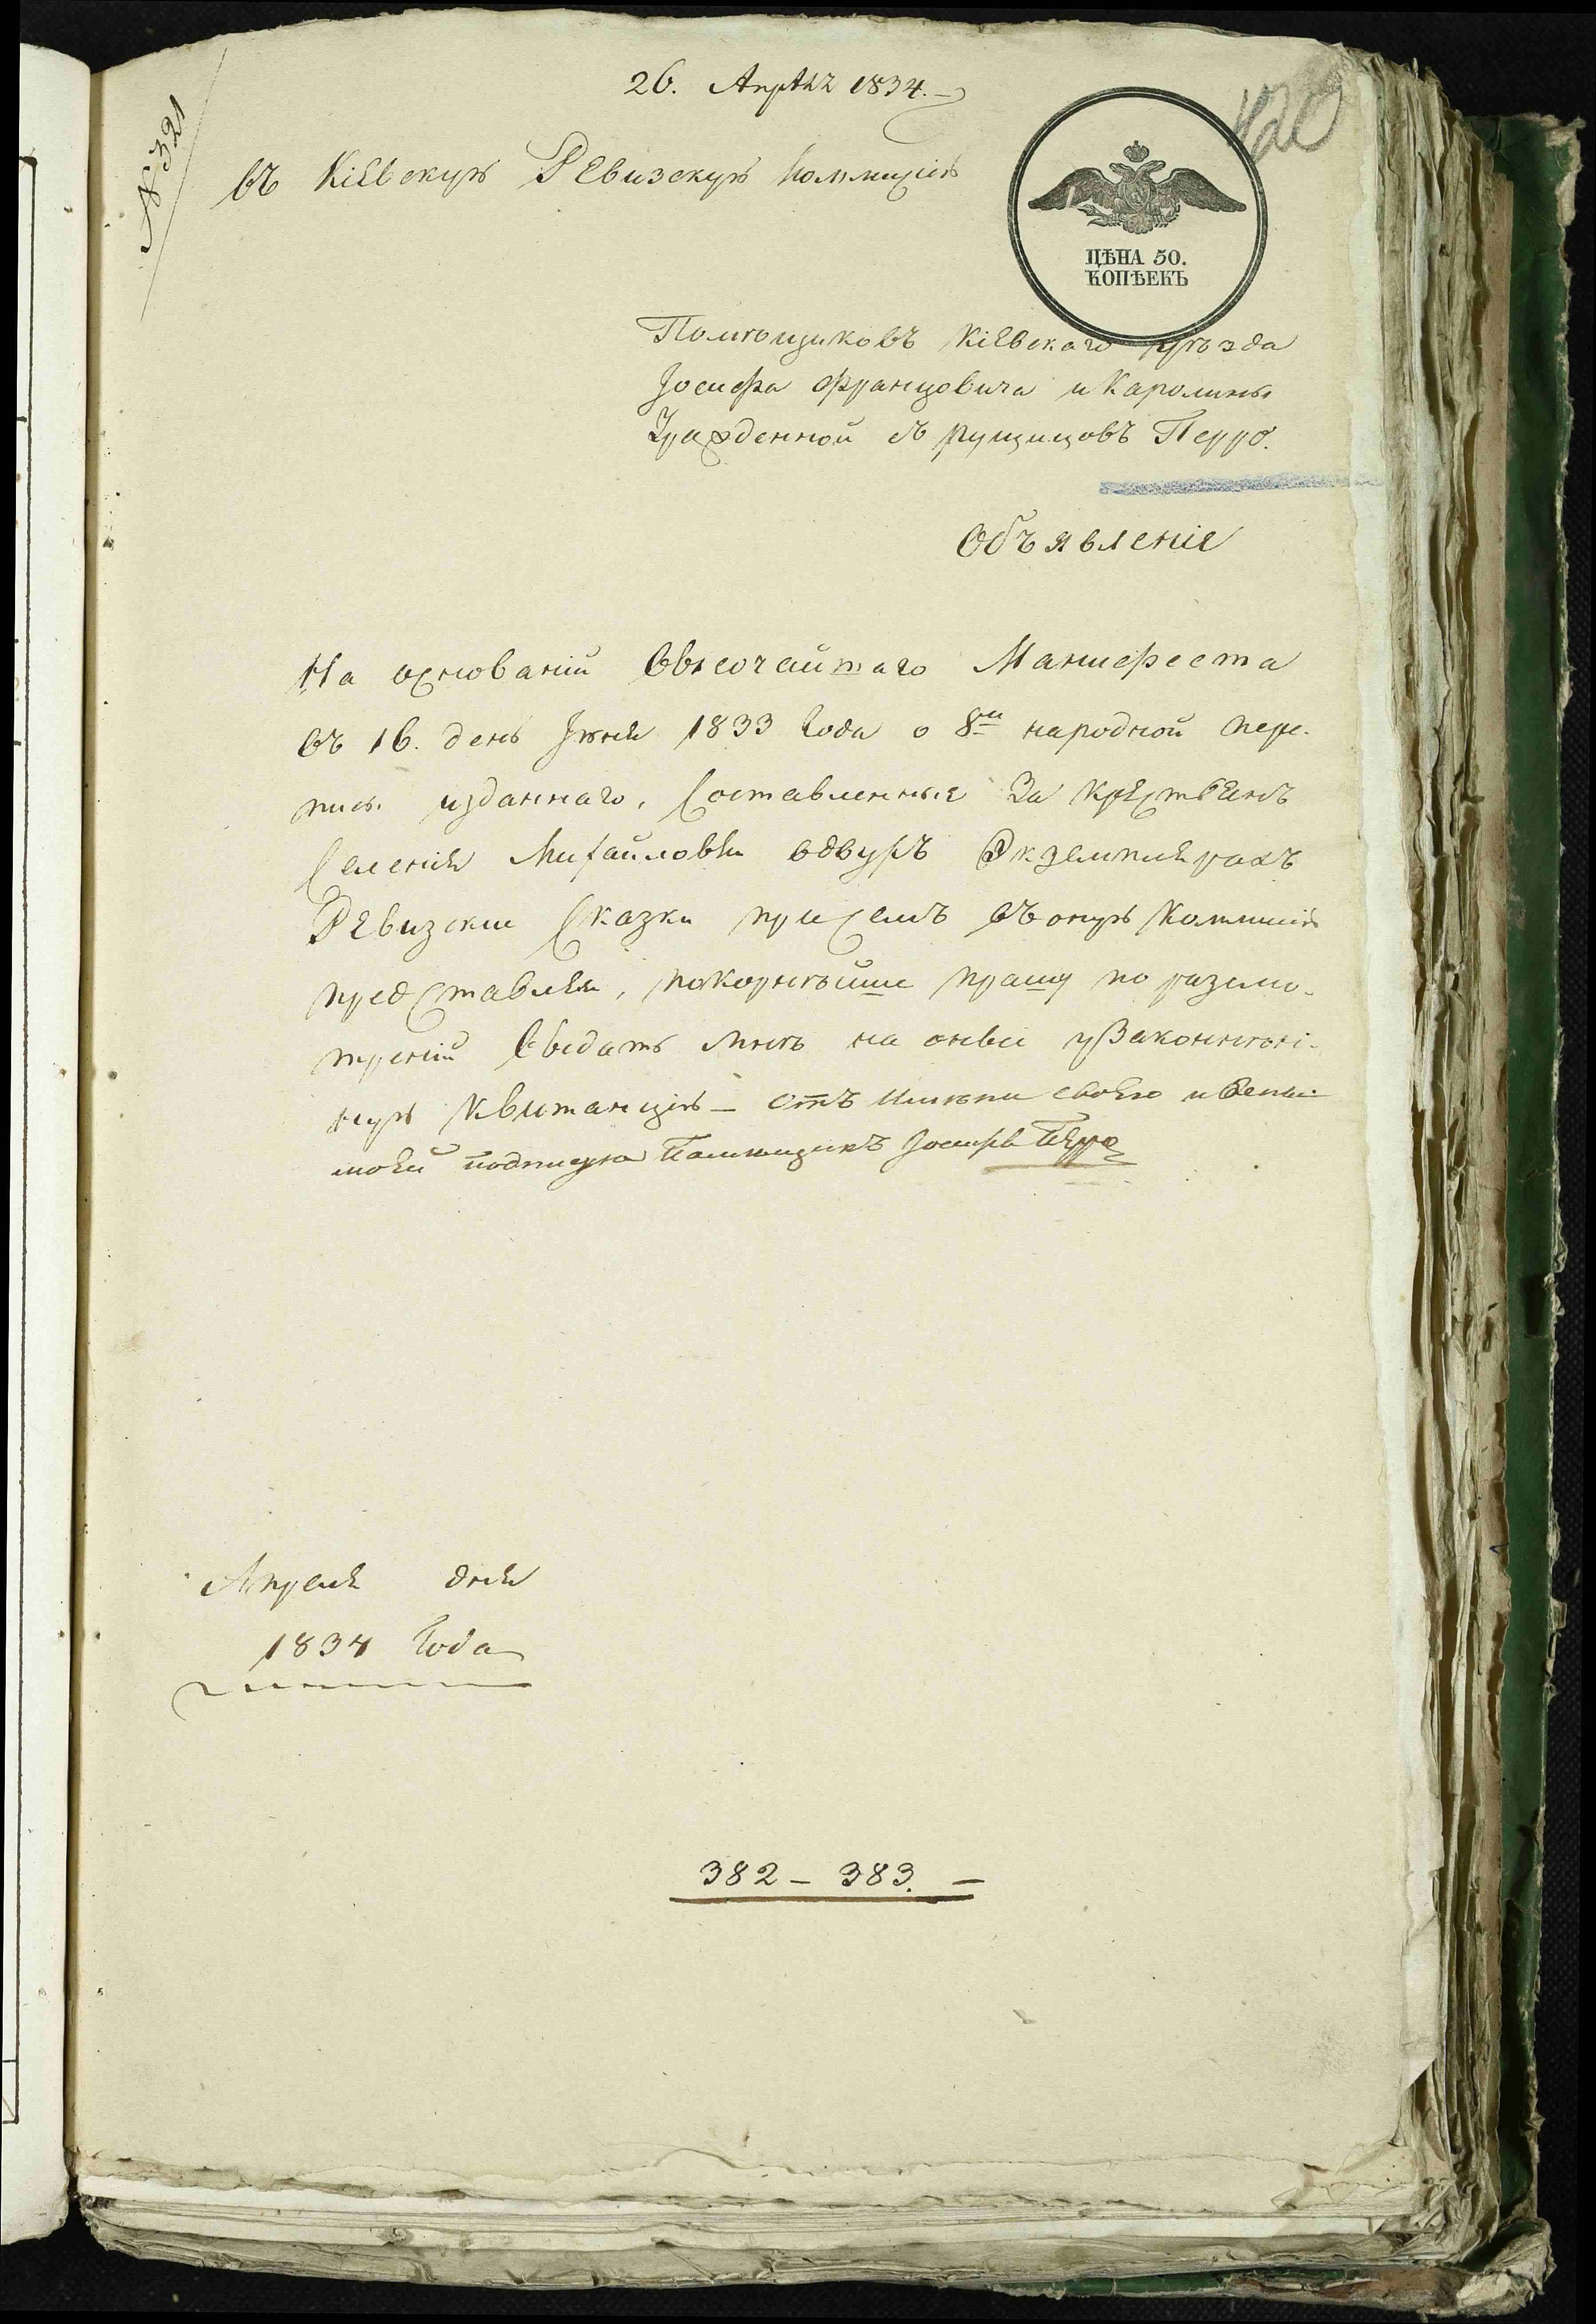 26. Апрѣля 1834.
№ 321
въ Кіевскую Ревизскую Коммисію
ЦѢНА 50.
КОПѢЕКЪ
Помѣщиковъ Кіевскаго уѣзда
Іосифа Францовича и Каролины
Урожденной съ Рущицовъ Перро.
Объявленіе
На основаніи Высочайшаго Манифеста
въ 16. день Іюня 1833 Года о 8й народной пере-
писи изданнаго, Составленные За крестьянъ
Селенія Михайловки вдвухъ Экземплярахъ
Ревизские Сказки при Семъ въ оную Коммисію
представляя, покорнѣйше прашу по разсмо-
треніи Выдать мнѣ на оныи уЗаконен
ную Квитанцію — отъ имени своего и жены
моей подписую Помѣщикъ Іосифъ Перро
Апреля дня
1834 Года
382 – 383. –